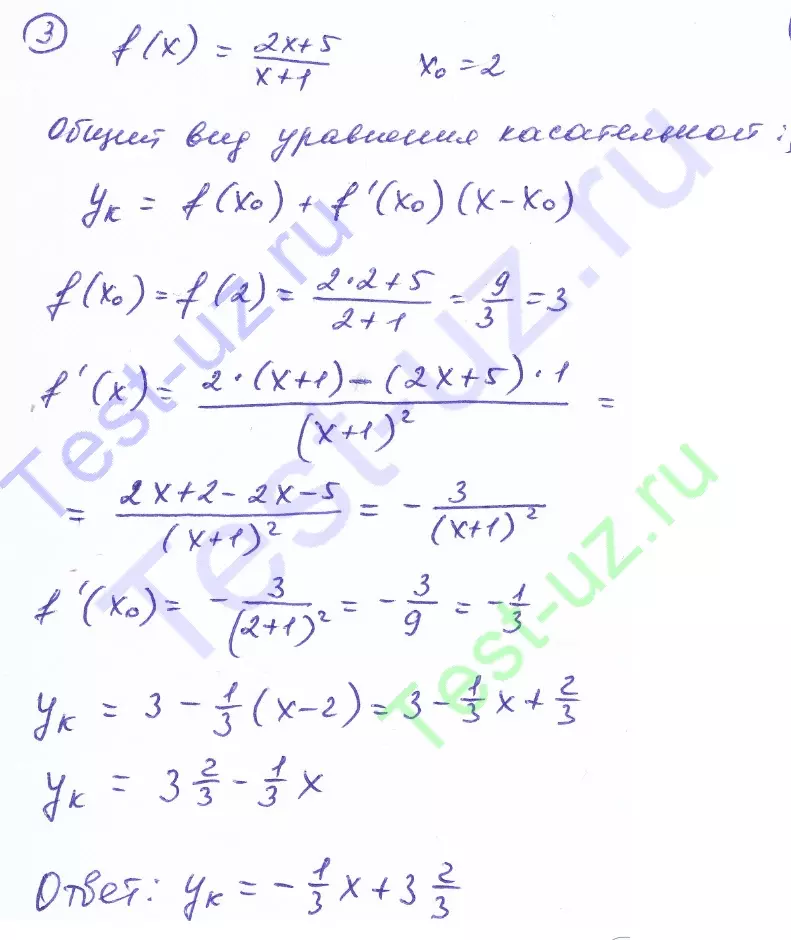 ③ f(x) = (2x+5)/(x+1) x₀ = 2
Общий вид уравнения касательной:
yк = f(x₀) + f'(x₀)(x-x₀)
f(x₀) = f(2) = (2·2+5)/(2+1) = 9/3 = 3
f'(x) = (2·(x+1)-(2x+5)·1)/(x+1)² =
= (2x+2-2x-5)/(x+1)² = -3/(x+1)²
f'(x₀) = -3/(2+1)² = -3/9 = -1/3
yк = 3 - 1/3(x-2) = 3 - 1/3x + 2/3
yк = 3 2/3 - 1/3x
Ответ: yк = -1/3x + 3 2/3
Test-uz.ru
Test-uz.ru
Test-uz.ru